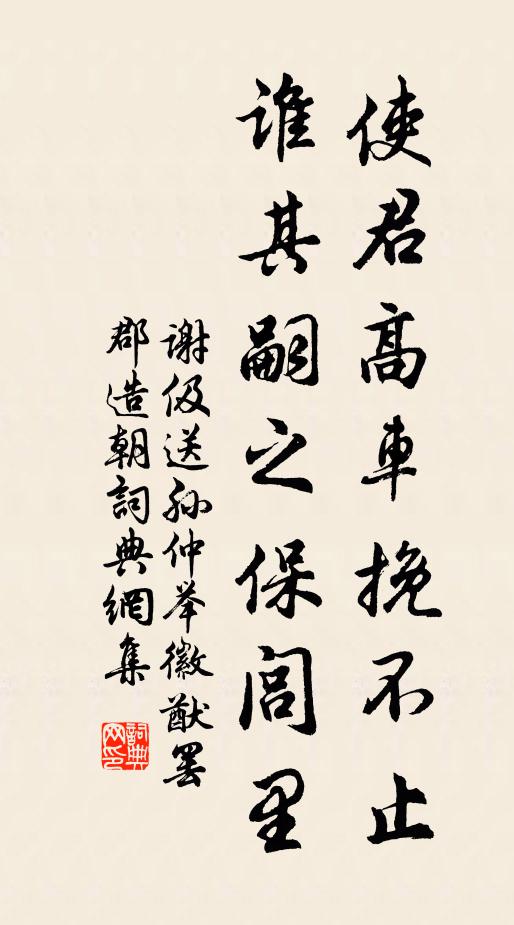 使君高車挽不止
誰其嗣之保閭里
謝伋送孫仲举徽猷罢
郡造朝詞典網集
詞典网印